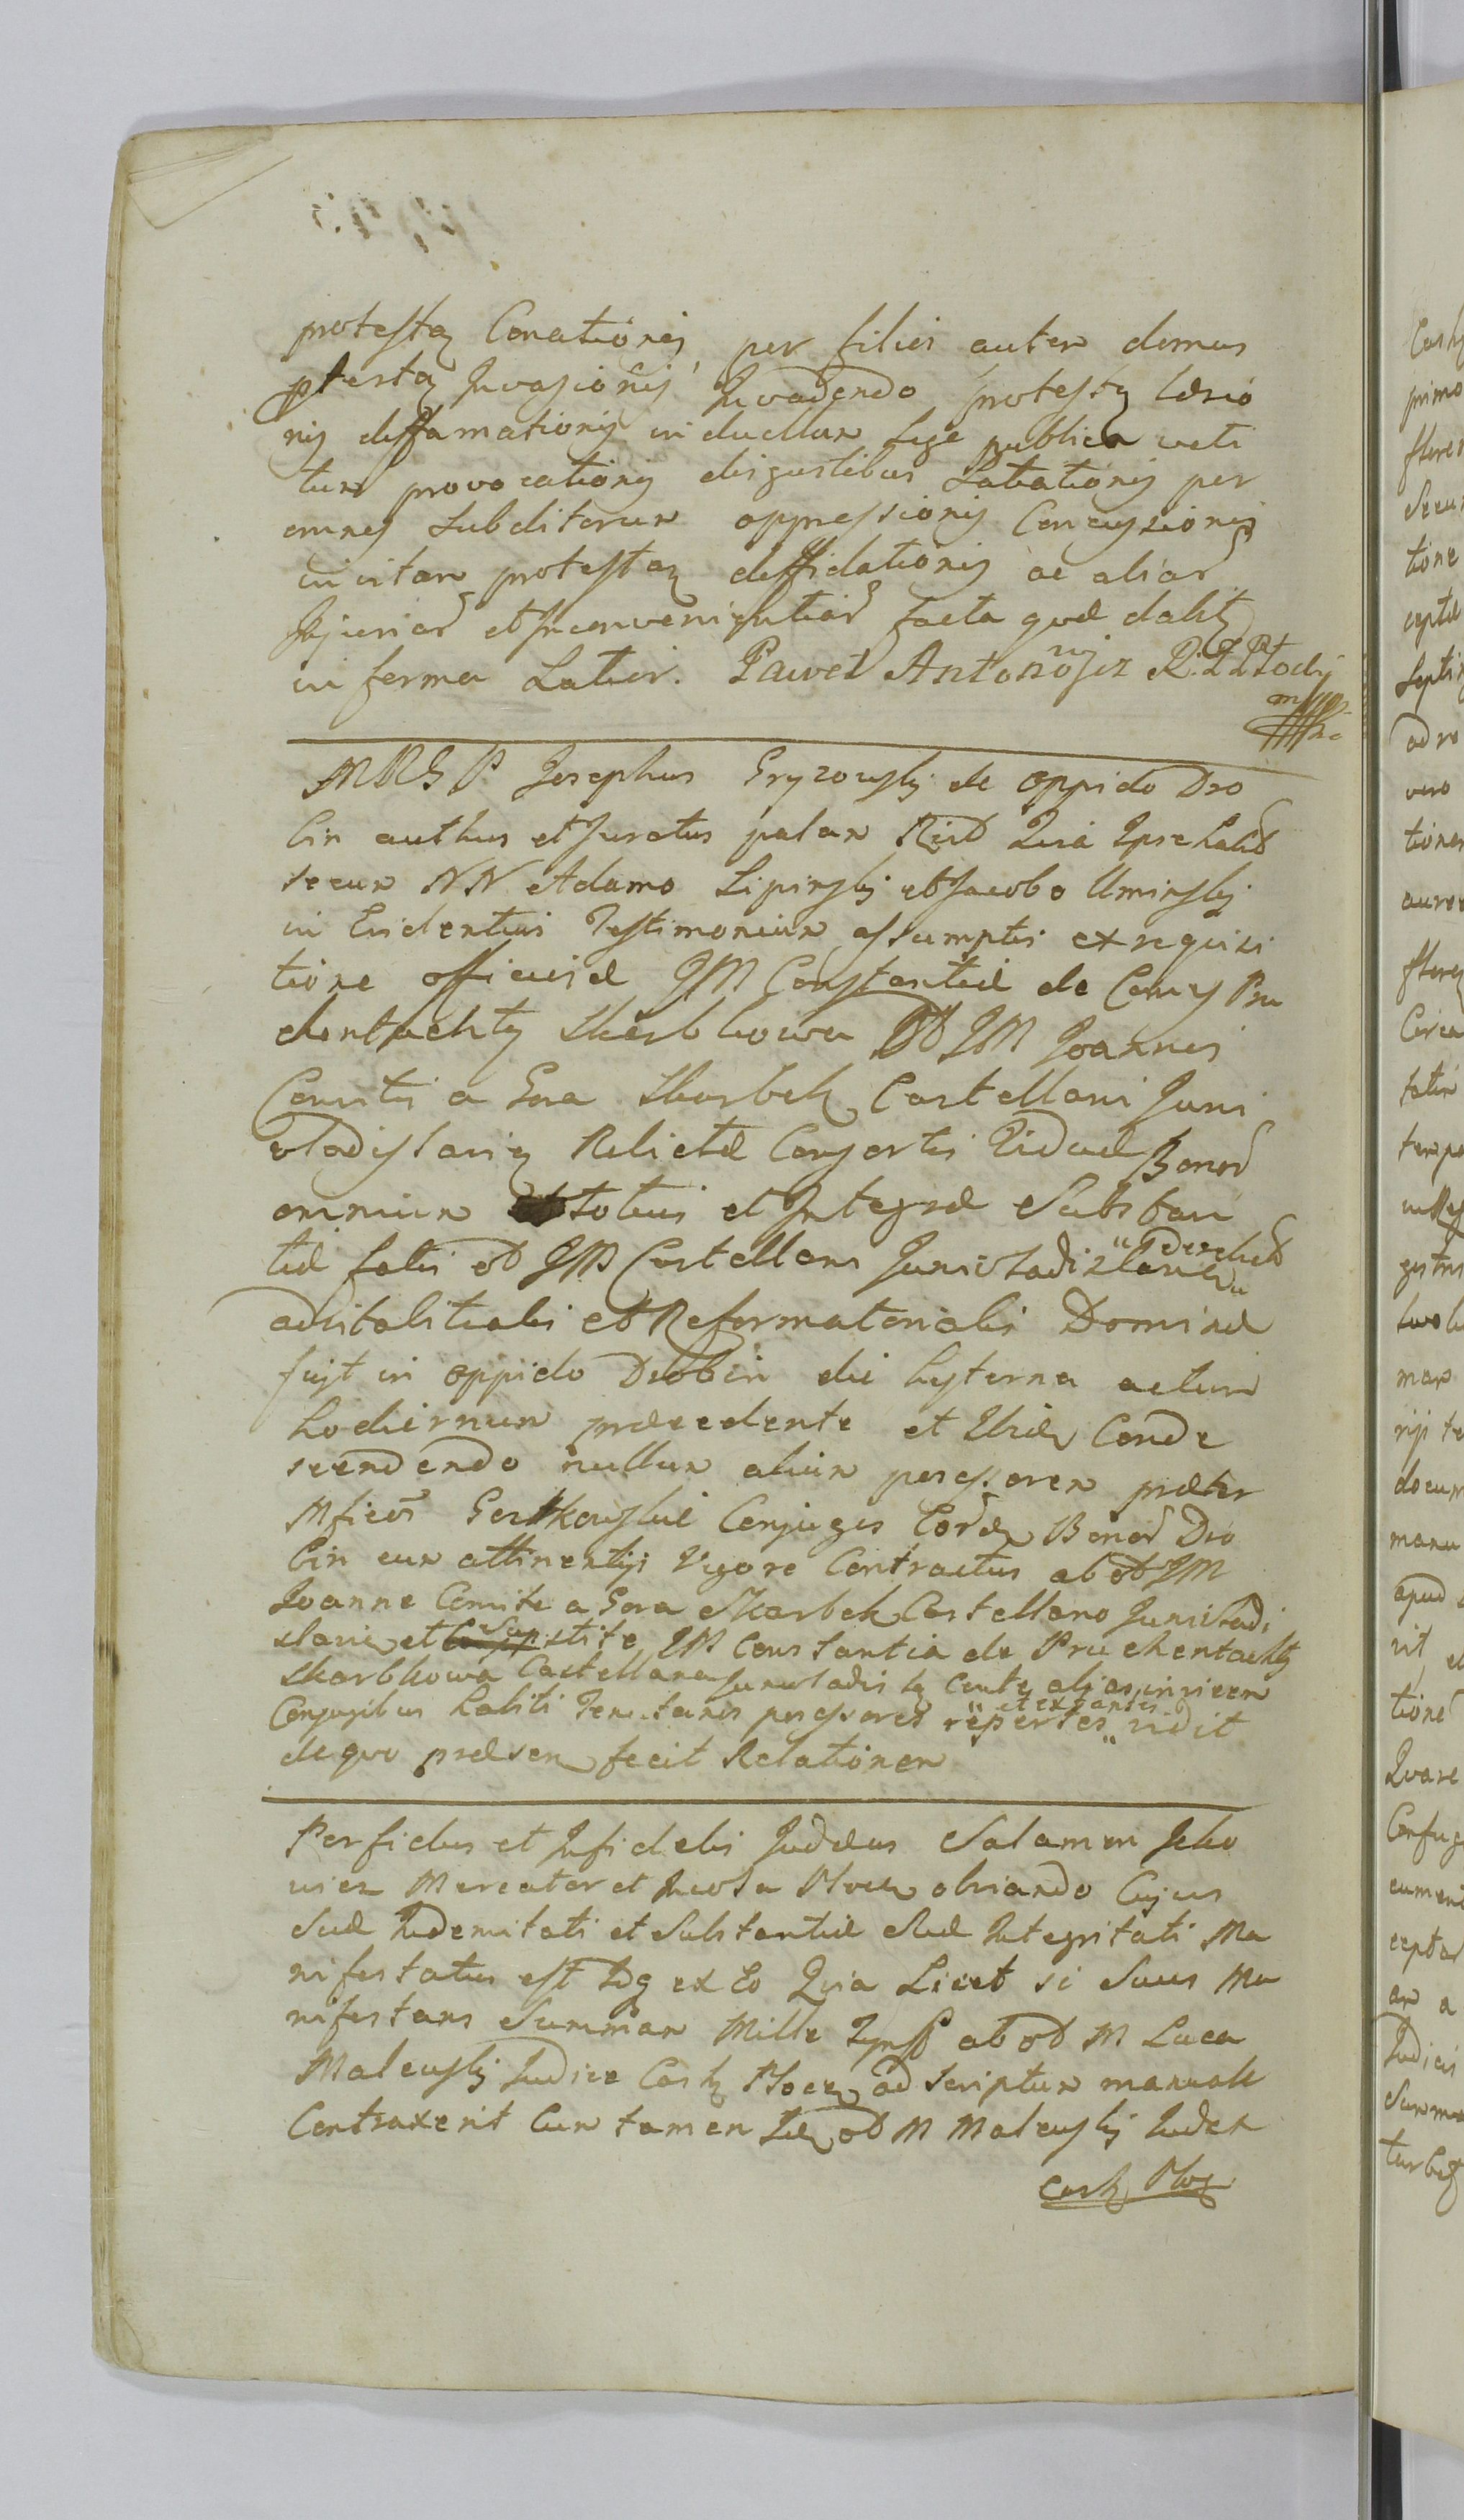 protestaz Conationis per filios autem domus
ptestaz Invasionis Invadendo protestaz Læsio
nis diffamationis in duellum Lege publica veti
tum provocationis disgustibus Satiationis per
omnes Subditorum oppressionis Concussionis
in vitam protestaz diffidationis ac aliar
Injuriar et Inconvenientiar facta que dabitz
in forma Latior. Paweł Antoni R.
MRGP Josephus Gryzowskj de oppido Dro
bin authus et Juratus palam Quia Ipse habit
secum NN Adamo Lipinskj et Jacobo Uminskj
in Evidentius Testimonium assumptis ex requisi
tione officiosæ JM Constantiæ de Comitz Pru
chentachtz Skarbkowa JM Joannis
Comitis a Gora Skarbek Castellani Juni
vladislavien Relictæ Consortis Viduæ Bonor
omnium totius et Integræ Substan
tiæ fatis JM Castellano Junivladislavien derelict
advitalitialis et Reformatorialis Dominæ
fuit in oppido Drobin die hesterna actum
hodiernum præcedente et Ibidem Conde
scendendo nullum alium possessorem præter
Mficos Conjuges Eordem Bonor Dro
bin cum attinentijs Vigore Contractus ab JM
Joanne Comite a Gora Skarbek Castellano Junivladi
slavien et Supstite JM Constantia de Pruchentachtz
Skarbkowa Castellanea Junivladislaz Comte alias invicem
Conjugibus habiti Tenutarios possessores repertos et extantes vidit
de quo præsen fecit Relationem
Perfidus et Infidelis Judæus Salamon Icko
wicz Mercator et Incola Plocen obviando Cujus
Suæ Indemnitati et Substantiæ Suæ Integritati Ma
nifestatus est Idq ex Eo Quia Licet is Suus Ma
nifestans Summam Mille ab M Luca
Malewskj Judice Castz Plocen ad Scriptum manuale
Contraxerit Cum tamen Idem M Malewskj Judex
Castz Ploc